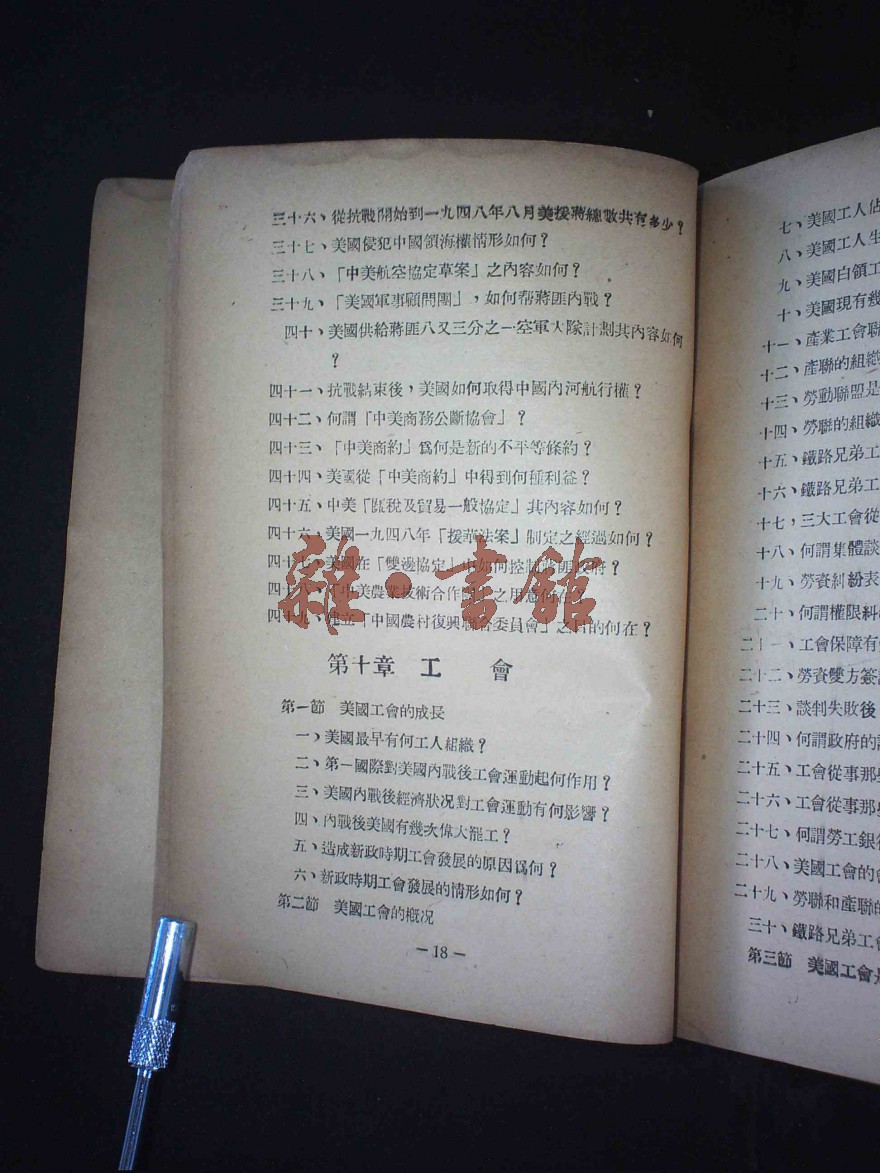 三十六、從抗戰開始到一九四八年八月美援蔣總數共有多少？
三十七、美國侵犯中國領海權情形如何？
三十八、「中美航空協定草案」之內容如何？
三十九、「美國軍事顧問團」，如何帮蔣匪內戰？
四十、美國供給蔣匪八又三分之一空軍大隊計劃其內容如何
？
四十一、抗戰結束後，美國如何取得中國內河航行權？
四十二、何謂「中美商務公斷協會」？
四十三、「中美商約」爲何是新的不平等條約？
四十四、美國從「中美商約」中得到何種利益？
四十五、中美「關稅及貿易一般協定」其內容如何？
四十六、美國一九四八年「援華法案」制定之經過如何？
四十七、美國在「雙邊協定」中如何控制蔣朝政府？
四十八、「中美農業技術合作團」之用意何在？
四十九、建立「中國農村復興聯合委員會」之目的何在？
第十章 工 會
第一節 美國工會的成長
一、美國最早有何工人組織？
二、第一國際對美國內戰後工會運動起何作用？
三、美國內戰後經濟狀况對工會運動有何影響？
四、內戰後美國有幾次偉大罷工？
五、造成新政時期工會發展的原因爲何？
六、新政時期工會發展的情形如何？
第二節 美國工會的概况
－18－
七、美國工人佔
八、美國工人生
九、美國白領工
十、美國現有幾
十一、產業工會聯
十二、產聯的組織
十三、勞動聯盟是
十四、勞聯的組織
十五、鐵路兄弟工
十六、鐵路兄弟工
十七，三大工會從
十八、何謂集體談
十九、勞資糾紛表
二十、何謂權限糾
二十一、工會保障有
二十二、勞資雙方簽
二十三、談判失敗後
二十四、何謂政府的
二十五、工會從事那
二十六、工會從事那
二十七、何謂勞工銀
二十八、美國工會的
二十九、勞聯和產聯的
三十、鐵路兄弟工
第三節 美國工會
雜·書舘